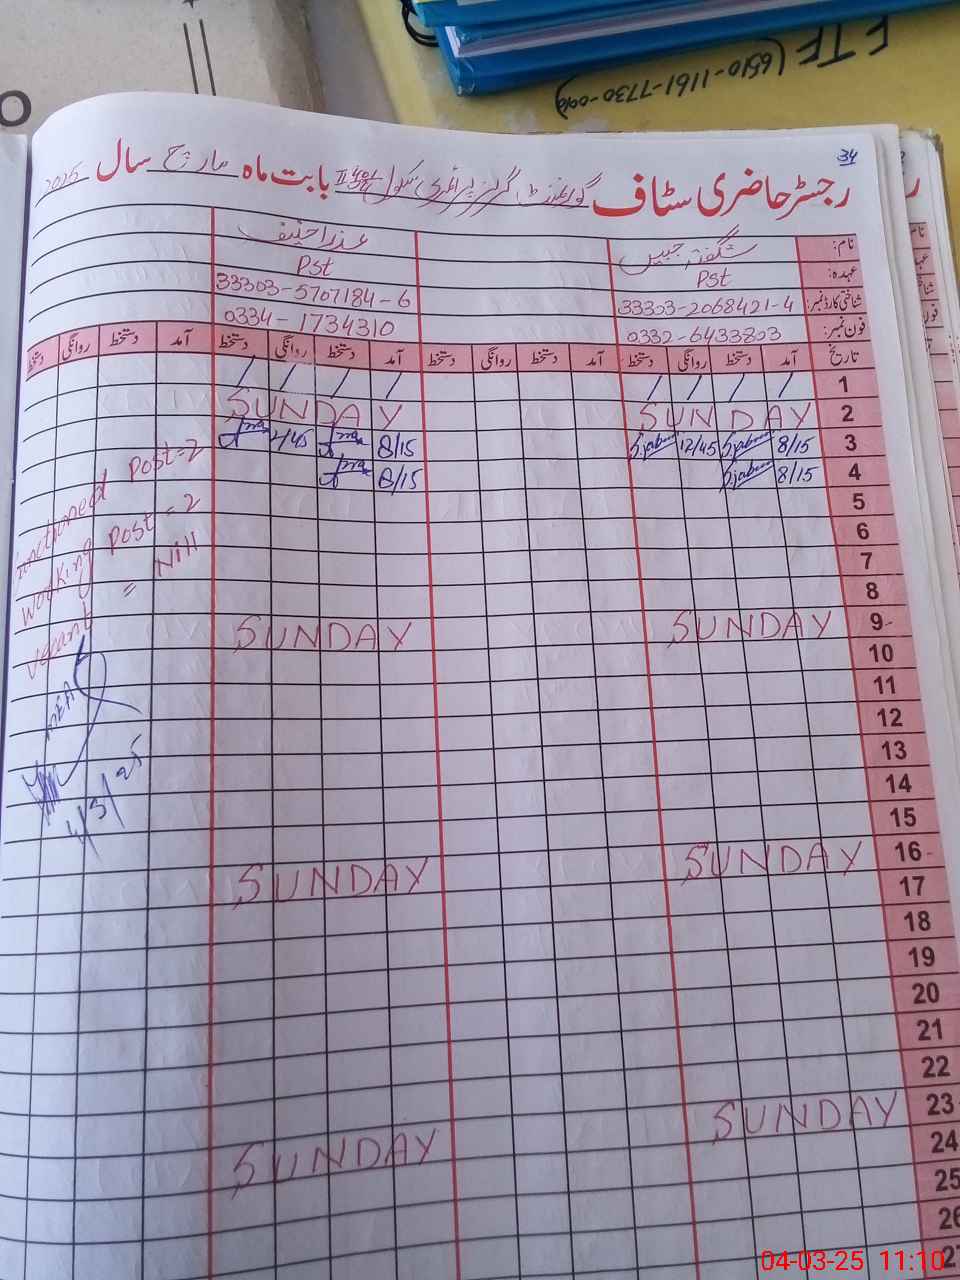 FTF (6510-1161-7730-006)
34
رجسٹر حاضری سٹاف گورنمنٹ گرلز پرائمری سکول بابت ماہ مارچ سال 2025
نام: شگفتہ جبیں عذرا حنیف
عہدہ: Pst Pst
شناختی کارڈ نمبر: 33303-2068421-4 33303-5707184-6
فون نمبر: 0332-6433803 0334-1734310
تاریخ آمد دستخط روانگی دستخط آمد دستخط روانگی دستخط آمد دستخط روانگی دستخط آمد دستخط روانگی دستخط
1 / / / / / / / /
2 SUNDAY SUNDAY
3 8/15 S.jabeen 12/45 S.jabeen 8/15
4 8/15 S.jabeen 8/15
5
6
7
8
9 SUNDAY SUNDAY
10
11
12
13
14
15
16 SUNDAY SUNDAY
17
18
19
20
21
22
23 SUNDAY SUNDAY
24
25
26
27
Post = 2
working Post = 2
vecant = Nill
4/3/25
04-03-25 11:10